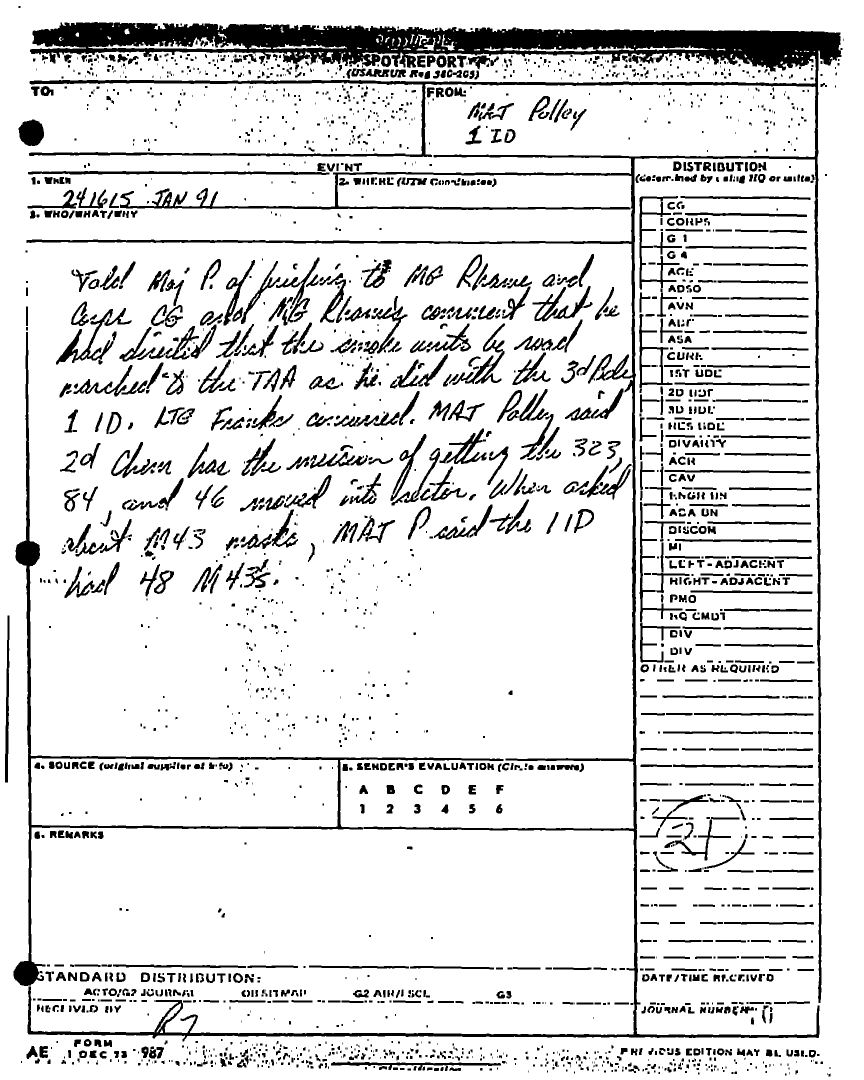 SPOT REPORT
(USAREUR Reg 380-205)
TO:
FROM:
MAJ Polley
1 ID
EVENT
1. WHEN
241615 JAN 91
2. WHERE (UTM Coordinates)
3. WHO/WHAT/WHY
Told Maj P. of briefing to MG Rhame and
Corps CG and MG Rhame's comment that he
had directed that the smoke units be road
marched to the TAA as he did with the 3d Bde,
1 ID. LTG Franks concurred. MAJ Polley said
2d Chem has the mission of getting the 323,
84, and 46 moved into sector. When asked
about M43 masks, MAJ P said the 1 ID
had 48 M43's.
DISTRIBUTION
(determined by using HQ or units)
CG
CORPS
G 1
G 4
ACE
ADSO
AVN
ASA
1ST BDE
2D BDE
3D BDE
RES BDE
DIVARTY
ACR
CAV
ENGR BN
ADA BN
DISCOM
MI
LEFT-ADJACENT
RIGHT-ADJACENT
PMO
HQ CMDT
DIV
DIV
OTHER AS REQUIRED
21
4. SOURCE (original supplier of info)
5. SENDER'S EVALUATION (Circle answers)
A B C D E F
1 2 3 4 5 6
6. REMARKS
STANDARD DISTRIBUTION:
ACTO/G2 JOURNAL OB SITMAP G2 AIR/FSCL G3
RECEIVED BY
DATE/TIME RECEIVED
JOURNAL NUMBER
AE FORM 1 DEC 73 987
PREVIOUS EDITION MAY BE USED.
Classification